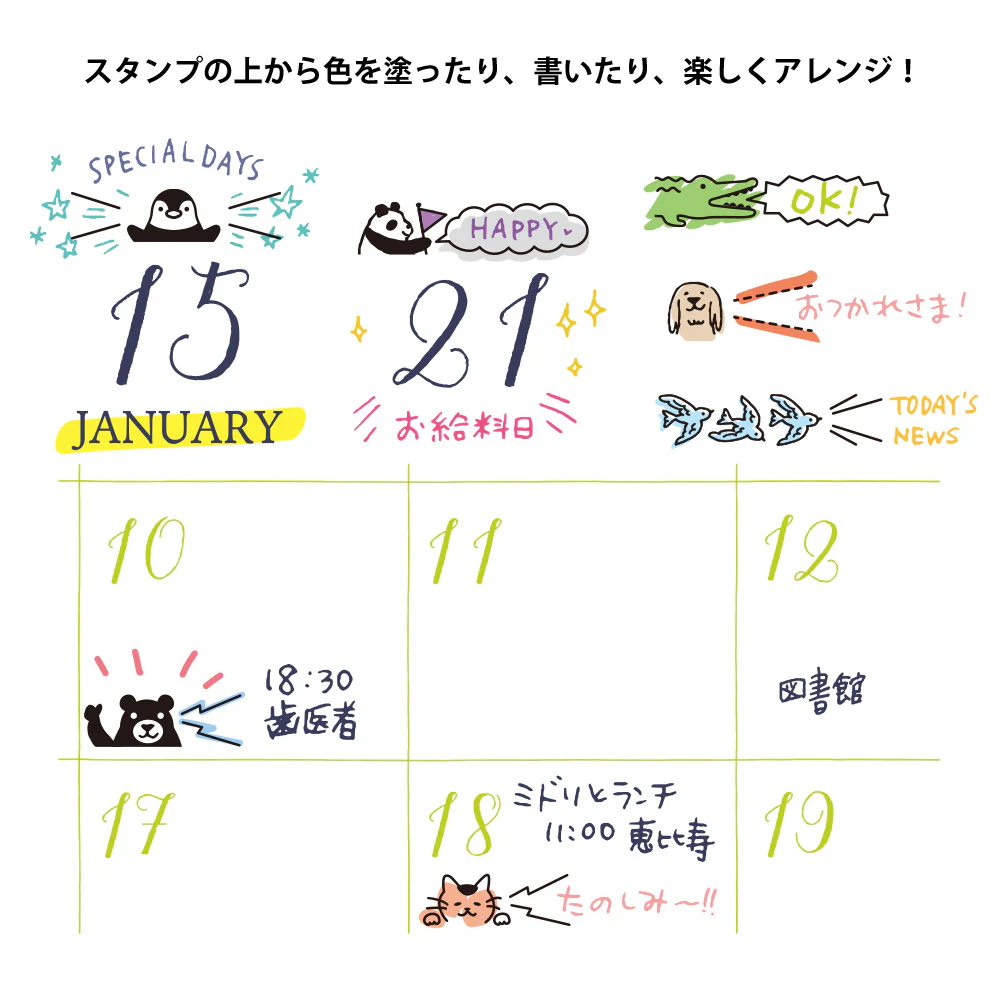 スタンプの上から色を塗ったり、書いたり、楽しくアレンジ！
SPECIAL DAYS
15
JANUARY
HAPPY
21
お給料日
OK!
おつかれさま!
TODAY'S
NEWS
10
18:30
歯医者
11
12
図書館
17
18
ミドリとランチ
11:00 恵比寿
たのしみ〜!!
19